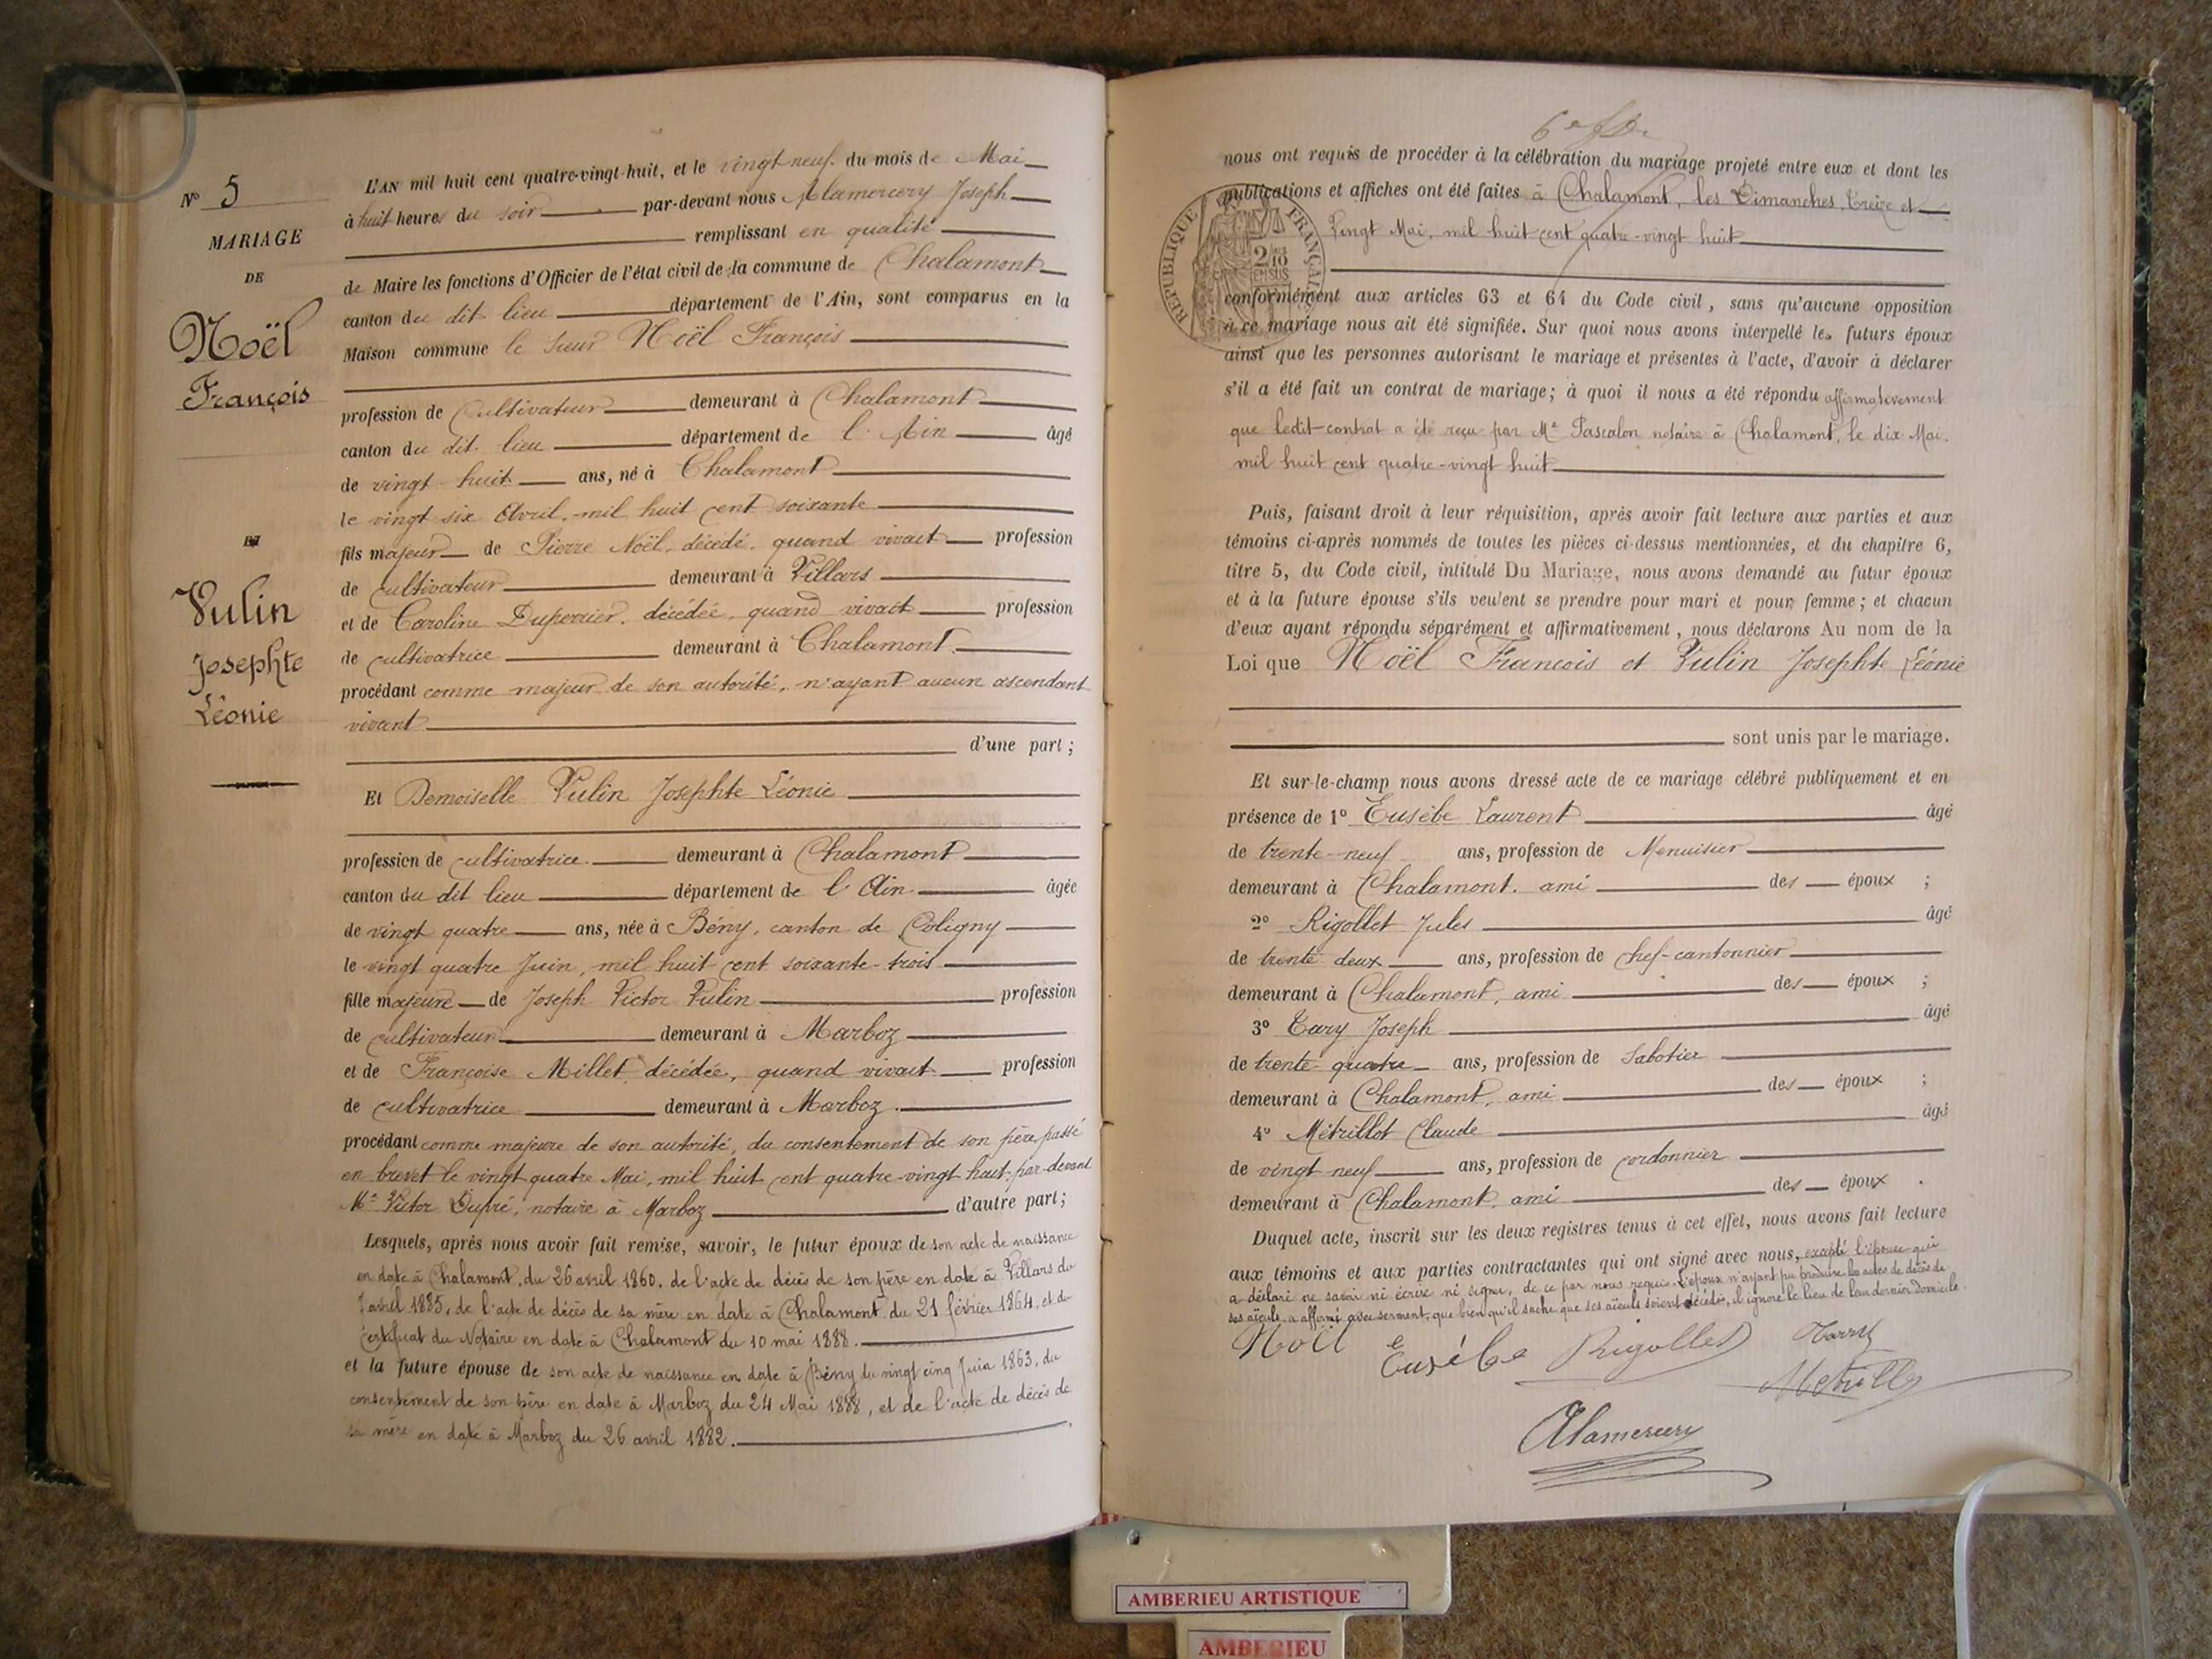 N° 5
MARIAGE
DE
Noël
François
ET
Vulin
Josephte
Léonie
L'AN mil huit cent quatre-vingt-huit, et le vingt neuf du mois de Mai
à huit heures du soir par-devant nous Alamercery Joseph
remplissant en qualité
de Maire les fonctions d'Officier de l'état civil de la commune de Chalamont
canton du dit lieu département de l'Ain, sont comparus en la
Maison commune le sieur Noël François
profession de Cultivateur demeurant à Chalamont
canton du dit lieu département de l'Ain âgé
de vingt huit ans, né à Chalamont
le vingt six Avril, mil huit cent soixante
fils majeur de Pierre Noël, décédé, quand vivait profession
de cultivateur demeurant à Villars
et de Caroline Duperrier, décédée, quand vivait profession
de cultivatrice demeurant à Chalamont.
procédant comme majeur de son autorité, n'ayant aucun ascendant
vivant
d'une part ;
Et Demoiselle Vulin Josephte Léonie
profession de cultivatrice demeurant à Chalamont
canton du dit lieu département de l'Ain âgée
de vingt quatre ans, née à Bény, canton de Coligny
le vingt quatre Juin, mil huit cent soixante-trois
fille majeure de Joseph Victor Vulin profession
de cultivateur demeurant à Marboz
et de Françoise Millet décédée, quand vivait profession
de cultivatrice demeurant à Marboz.
procédant comme majeure de son autorité, du consentement de son père, passé
en brevet le vingt quatre Mai, mil huit cent quatre-vingt huit, par-devant
Me Victor Dupré, notaire à Marboz d'autre part ;
Lesquels, après nous avoir fait remise, savoir, le futur époux de son acte de naissance
en date à Chalamont, du 26 avril 1860, de l'acte de décès de son père en date à Villars du
avril 1885, de l'acte de décès de sa mère en date à Chalamont du 21 février 1864, et du
certificat du Notaire en date à Chalamont du 10 mai 1888.
et la future épouse de son acte de naissance en date à Bény du vingt cinq Juin 1863, du
consentement de son père en date à Marboz du 24 Mai 1888, et de l'acte de décès de
sa mère en date à Marboz du 26 avril 1882.
nous ont requis de procéder à la célébration du mariage projeté entre eux et dont les
publications et affiches ont été faites à Chalamont, les Dimanches, treize et
Vingt Mai, mil huit cent quatre-vingt huit
REPUBLIQUE FRANÇAISE
2/10
EN SUS
conformément aux articles 63 et 64 du Code civil, sans qu'aucune opposition
à ce mariage nous ait été signifiée. Sur quoi nous avons interpellé les futurs époux
ainsi que les personnes autorisant le mariage et présentes à l'acte, d'avoir à déclarer
s'il a été fait un contrat de mariage ; à quoi il nous a été répondu affirmativement
que ledit contrat a été reçu par Me Pascalon notaire à Chalamont, le dix Mai
mil huit cent quatre-vingt huit
Puis, faisant droit à leur réquisition, après avoir fait lecture aux parties et aux
témoins ci-après nommés de toutes les pièces ci-dessus mentionnées, et du chapitre 6,
titre 5, du Code civil, intitulé Du Mariage, nous avons demandé au futur époux
et à la future épouse s'ils veulent se prendre pour mari et pour femme ; et chacun
d'eux ayant répondu séparément et affirmativement, nous déclarons Au nom de la
Loi que Noël François et Vulin Josephte Léonie
sont unis par le mariage.
Et sur-le-champ nous avons dressé acte de ce mariage célébré publiquement et en
présence de 1° Eusèbe Laurent âgé
de trente-neuf ans, profession de Menuisier
demeurant à Chalamont, ami des époux ;
2° Rigollet Jules âgé
de trente deux ans, profession de chef-cantonnier
demeurant à Chalamont, ami des époux ;
3° Tary Joseph âgé
de trente quatre ans, profession de Sabotier
demeurant à Chalamont, ami des époux ;
4° Métrillot Claude âgé
de vingt neuf ans, profession de cordonnier
demeurant à Chalamont, ami des époux .
Duquel acte, inscrit sur les deux registres tenus à cet effet, nous avons fait lecture
aux témoins et aux parties contractantes qui ont signé avec nous, excepté l'épouse qui
a déclaré ne savoir ni écrire ni signer, de ce par nous requis. L'époux n'ayant pu produire les actes de décès de
ses aïeuls, a affirmé avec serment, que bien qu'il sache que ses aïeuls soient décédés, il ignore le lieu de leur dernier domicile.
Noël Eusèbe Rigollet
Alamercery
AMBERIEU ARTISTIQUE
AMBERIEU